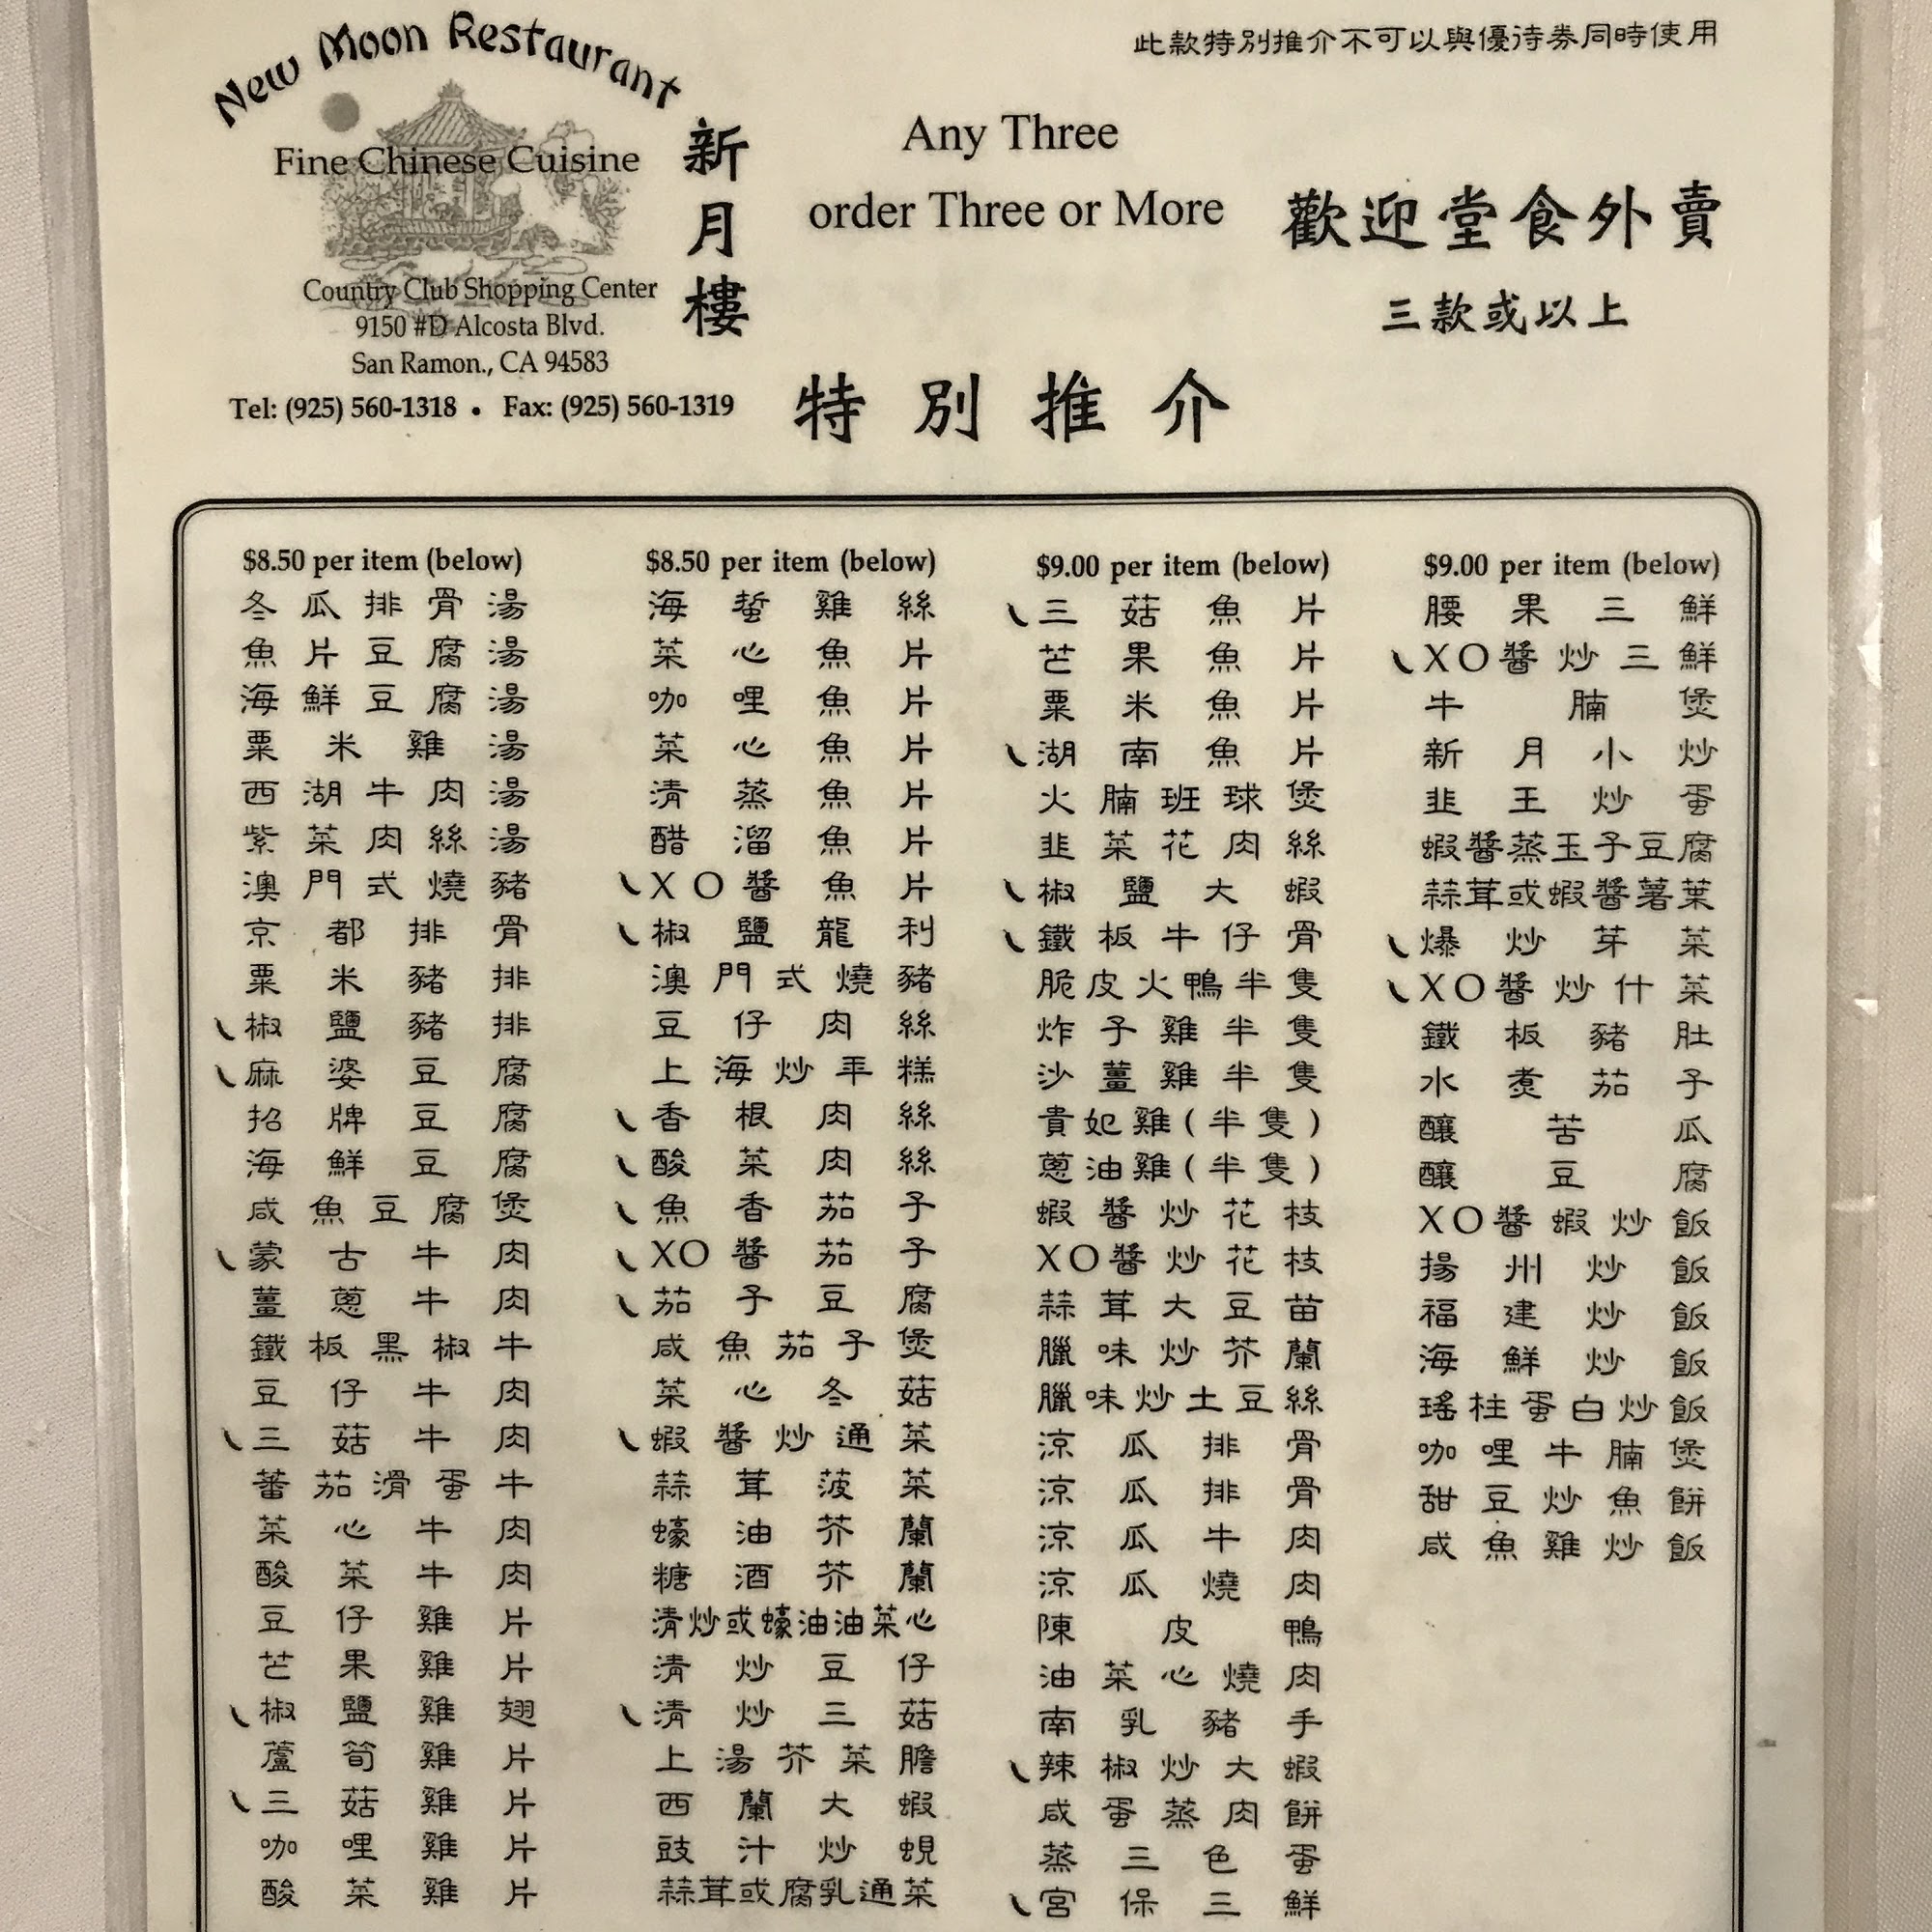 New Moon Restaurant
Fine Chinese Cuisine
新月樓
Country Club Shopping Center
9150 #D Alcosta Blvd.
San Ramon., CA 94583
Tel: (925) 560-1318 • Fax: (925) 560-1319
此款特別推介不可以與優待券同時使用
Any Three
order Three or More
歡迎堂食外賣
三款或以上
特別推介
$8.50 per item (below)
冬瓜排骨湯
魚片豆腐湯
海鮮豆腐湯
粟米雞湯
西湖牛肉湯
紫菜肉絲湯
澳門式燒豬
京都排骨
粟米豬排
椒鹽豬排
麻婆豆腐
招牌豆腐
海鮮豆腐
咸魚豆腐煲
蒙古牛肉
薑蔥牛肉
鐵板黑椒牛
豆仔牛肉
三菇牛肉
蕃茄滑蛋牛
菜心牛肉
酸菜牛肉
豆仔雞片
芒果雞片
椒鹽雞翅
蘆筍雞片
三菇雞片
咖哩雞片
酸菜雞片
$8.50 per item (below)
海蜇雞絲
菜心魚片
咖哩魚片
菜心魚片
清蒸魚片
醋溜魚片
XO醬魚片
椒鹽龍利
澳門式燒豬
豆仔肉絲
上海炒年糕
香根肉絲
酸菜肉絲
魚香茄子
XO醬茄子
茄子豆腐
咸魚茄子煲
菜心冬菇
蝦醬炒通菜
蒜茸菠菜
蠔油芥蘭
糖酒芥蘭
清炒或蠔油油菜心
清炒豆仔
清炒三菇
上湯芥菜膽
西蘭大蝦
豉汁炒蜆
蒜茸或腐乳通菜
$9.00 per item (below)
三菇魚片
芒果魚片
粟米魚片
湖南魚片
火腩班球煲
韭菜花肉絲
椒鹽大蝦
鐵板牛仔骨
脆皮火鴨半隻
炸子雞半隻
沙薑雞半隻
貴妃雞(半隻)
蔥油雞(半隻)
蝦醬炒花枝
XO醬炒花枝
蒜茸大豆苗
臘味炒芥蘭
臘味炒土豆絲
涼瓜排骨
涼瓜排骨
涼瓜牛肉
涼瓜燒肉
陳皮鴨
油菜心燒肉
南乳豬手
辣椒炒大蝦
咸蛋蒸肉餅
蒸三色蛋
宮保三鮮
$9.00 per item (below)
腰果三鮮
XO醬炒三鮮
牛腩煲
新月小炒
韭王炒蛋
蝦醬蒸玉子豆腐
蒜茸或蝦醬薯葉
爆炒芽菜
XO醬炒什菜
鐵板豬肚
水煮茄子
釀苦瓜
釀豆腐
XO醬蝦炒飯
揚州炒飯
福建炒飯
海鮮炒飯
瑤柱蛋白炒飯
咖哩牛腩煲
甜豆炒魚餅
咸魚雞炒飯